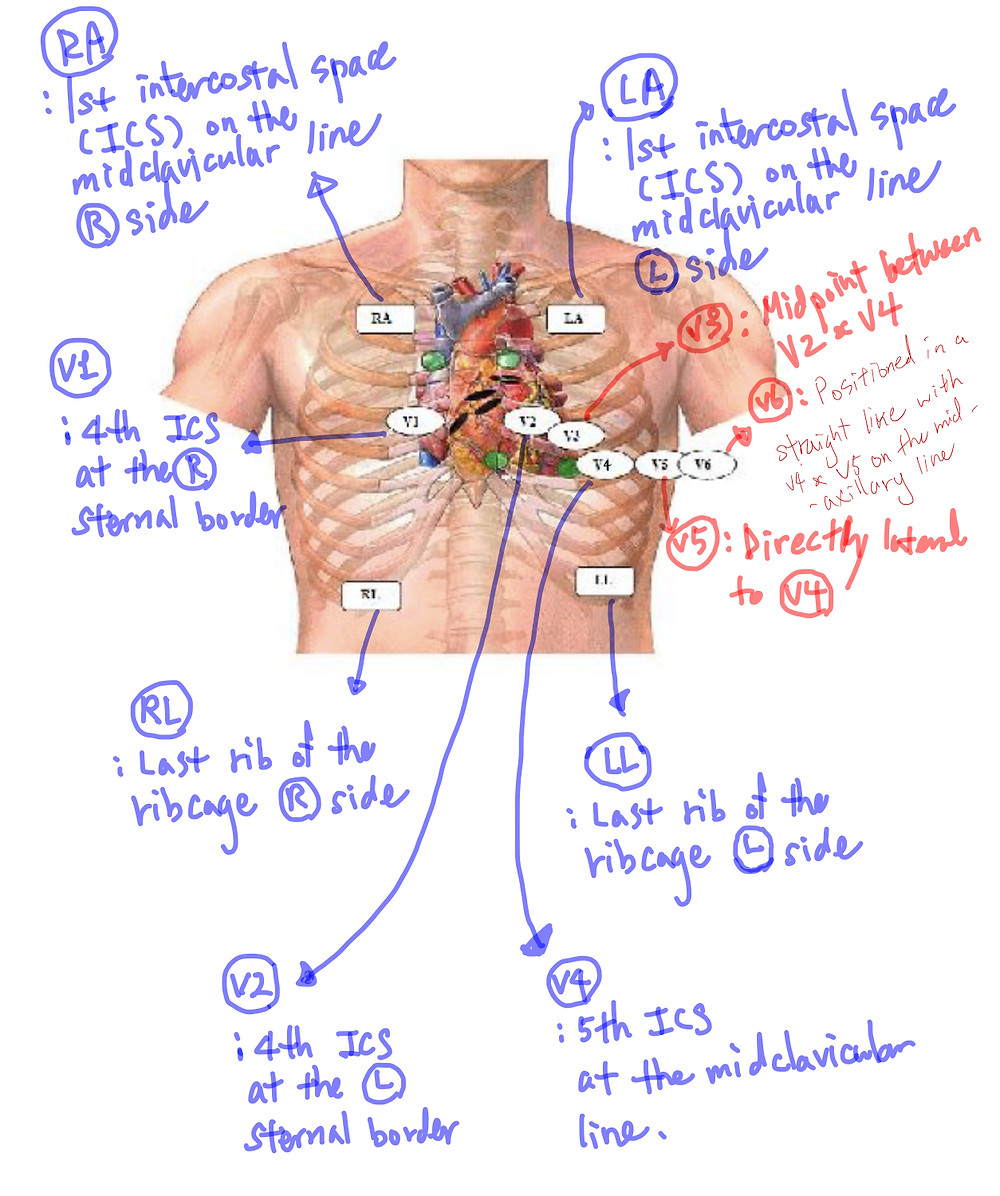 RA
: 1st intercostal space
(ICS) on the
midclavicular line
R side
LA
: 1st intercostal space
(ICS) on the
midclavicular line
L side
RA
LA
V3 : Midpoint between
V2 & V4
V1
: 4th ICS
at the R
sternal border
V6 : Positioned in a
straight line with
V4 & V5 on the mid-
-axillary line
V1
V2
V3
V4
V5
V6
V5 : Directly lateral
to V4
RL
LL
RL
: Last rib of the
ribcage R side
LL
: Last rib of the
ribcage L side
V2
: 4th ICS
at the L
sternal border
V4
: 5th ICS
at the midclavicular
line.